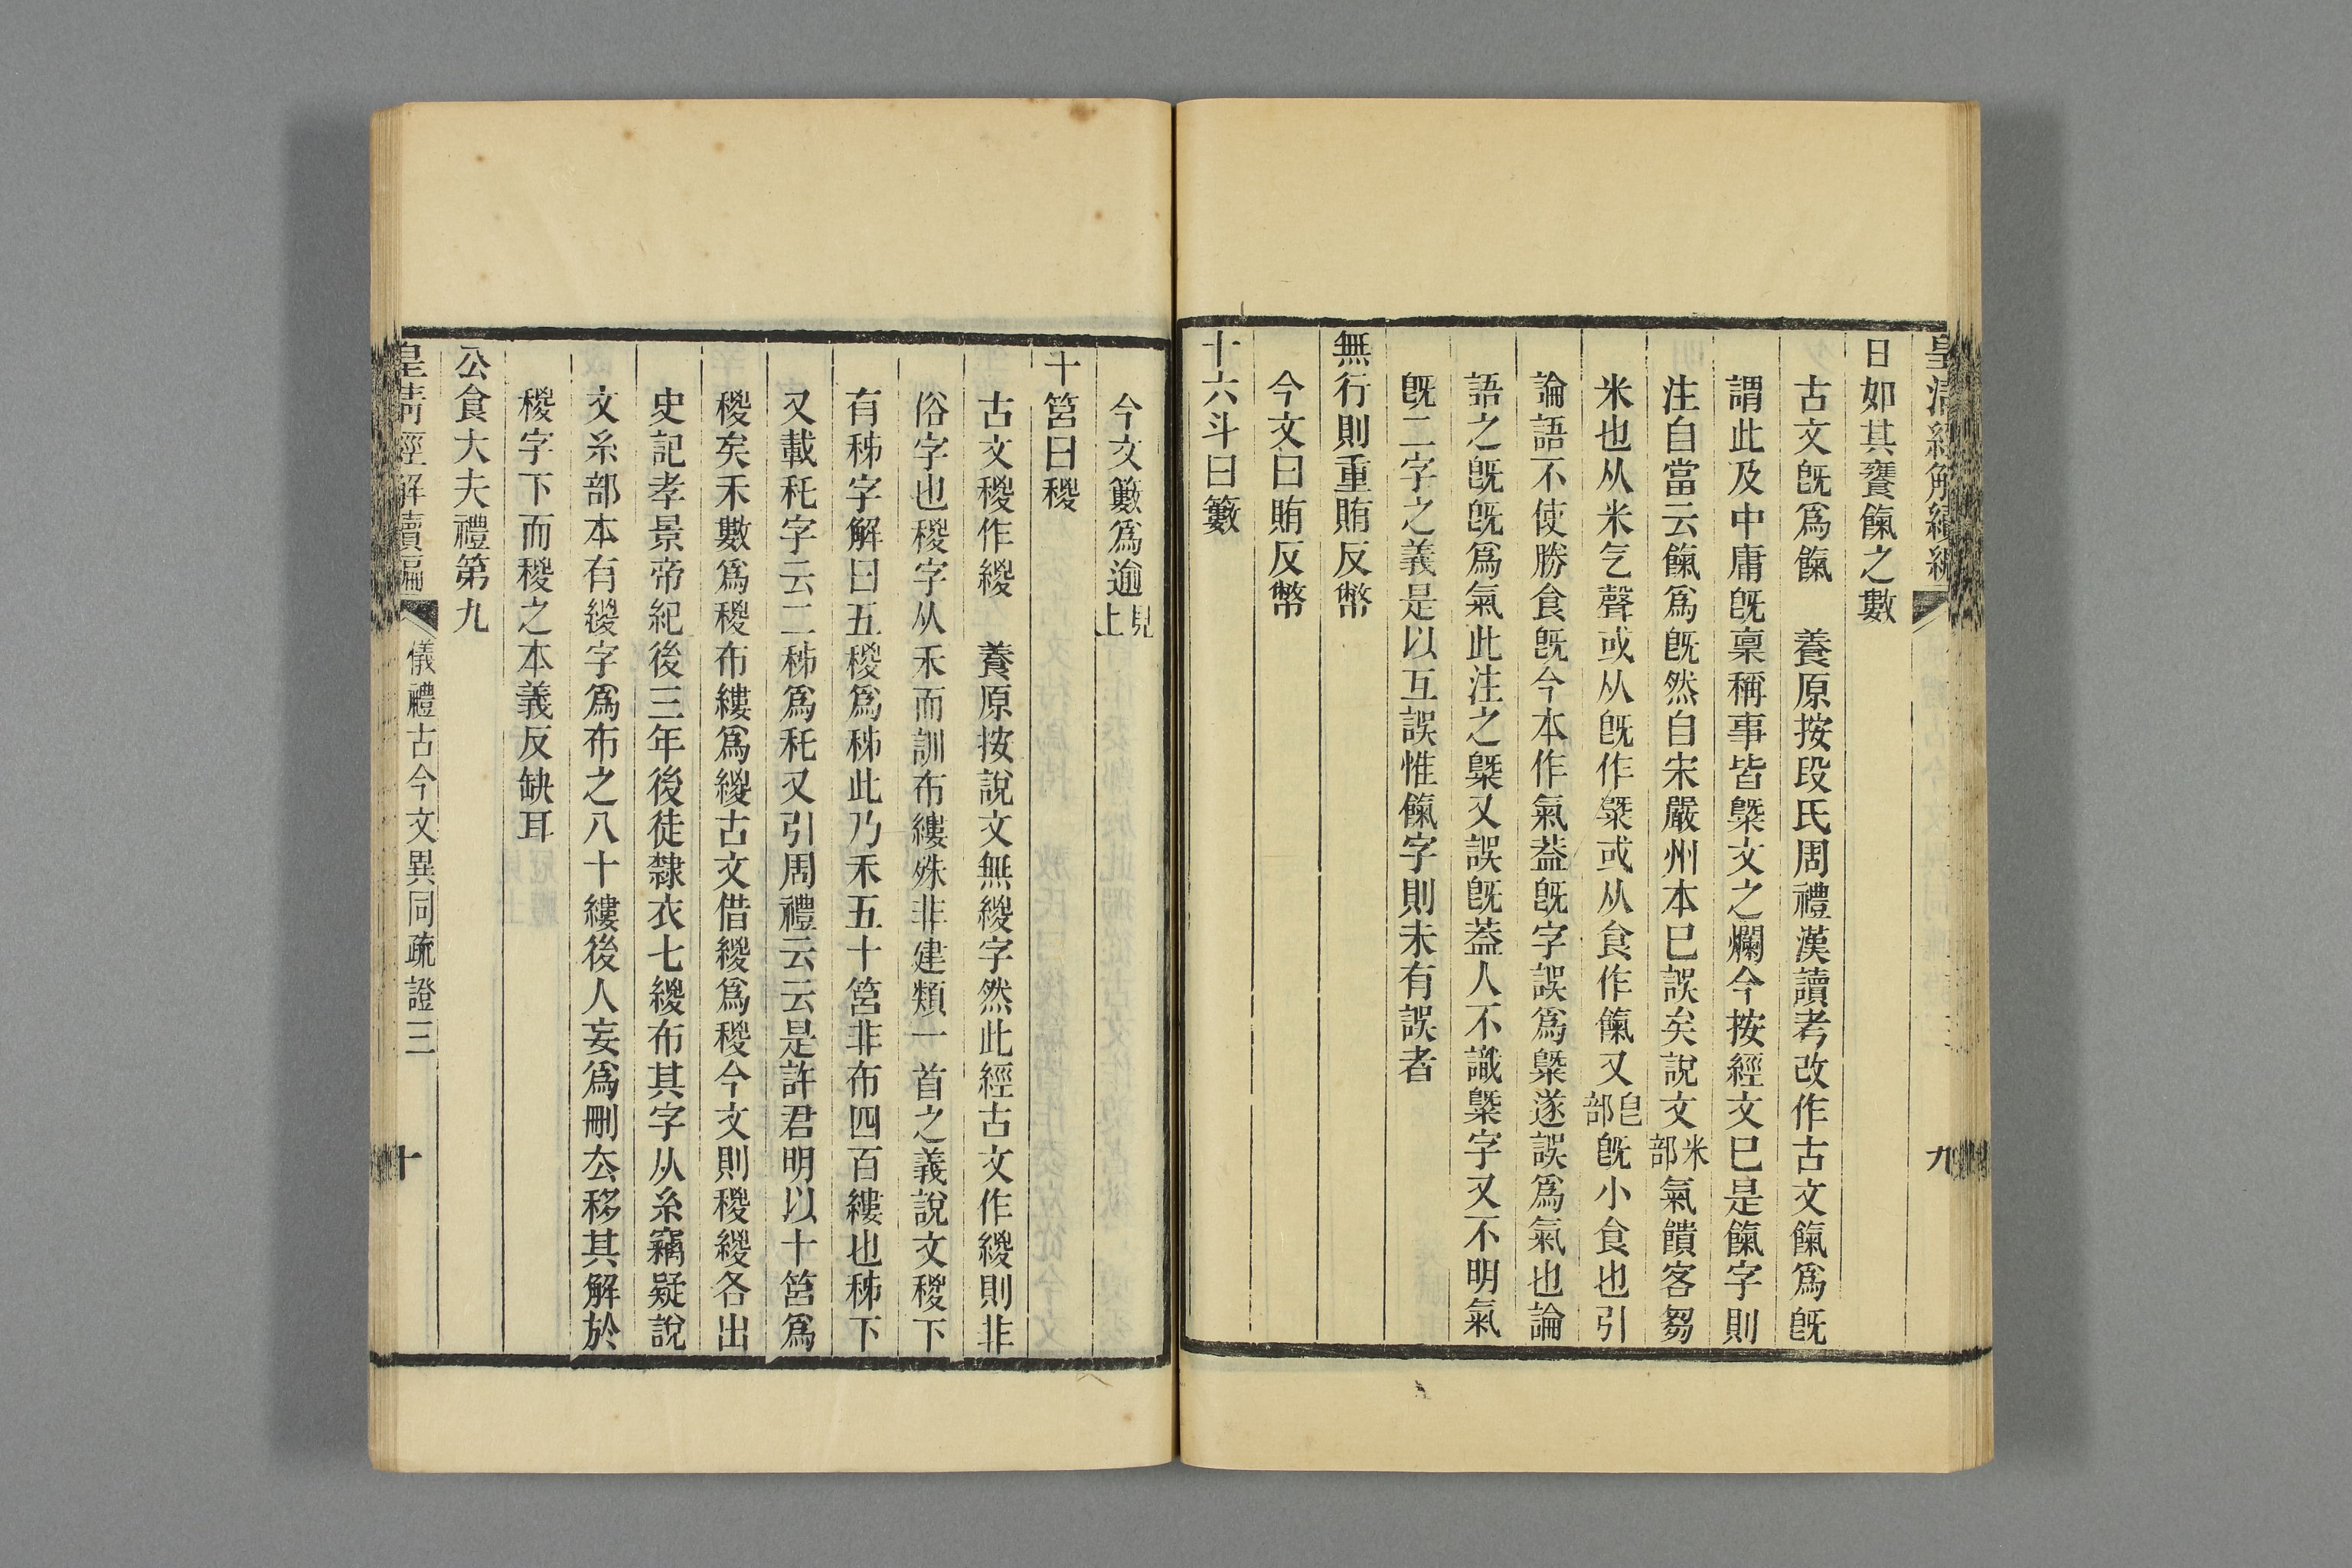 皇清經解續編
九
日如其饔餼之數
古文旣爲餼　養原按段氏周禮漢讀考改作古文餼爲旣
謂此及中庸旣稟稱事皆槩文之爛今按經文巳是餼字則
注自當云餼爲旣然自宋嚴州本巳誤矣說文米部氣饋客芻
米也从米气聲或从旣作䊠或从食作餼又皀部旣小食也引
論語不使勝食旣今本作氣葢旣字誤爲槩遂誤爲氣也論
語之旣旣爲氣此注之槩又誤旣葢人不識槩字又不明氣
旣二字之義是以互誤惟餼字則未有誤者
無行則重賄反幣
今文曰賄反幣
十六斗曰籔
今文籔爲逾見上
十筥曰稯
古文稯作緵　養原按說文無緵字然此經古文作緵則非
俗字也稯字从禾而訓布縷殊非建類一首之義說文稯下
有秭字解曰五稯爲秭此乃禾五十筥非布四百縷也秭下
又載秅字云二秭爲秅又引周禮云云是許君明以十筥爲
稯矣禾數爲稯布縷爲緵古文借緵爲稯今文則稯緵各出
史記孝景帝紀後三年後徒隸衣七緵布其字从糸竊疑說
文糸部本有緵字爲布之八十縷後人妄爲刪厺移其解於
稯字下而稯之本義反缺耳
公食大夫禮第九
皇清經解續編
儀禮古今文異同疏證三
十